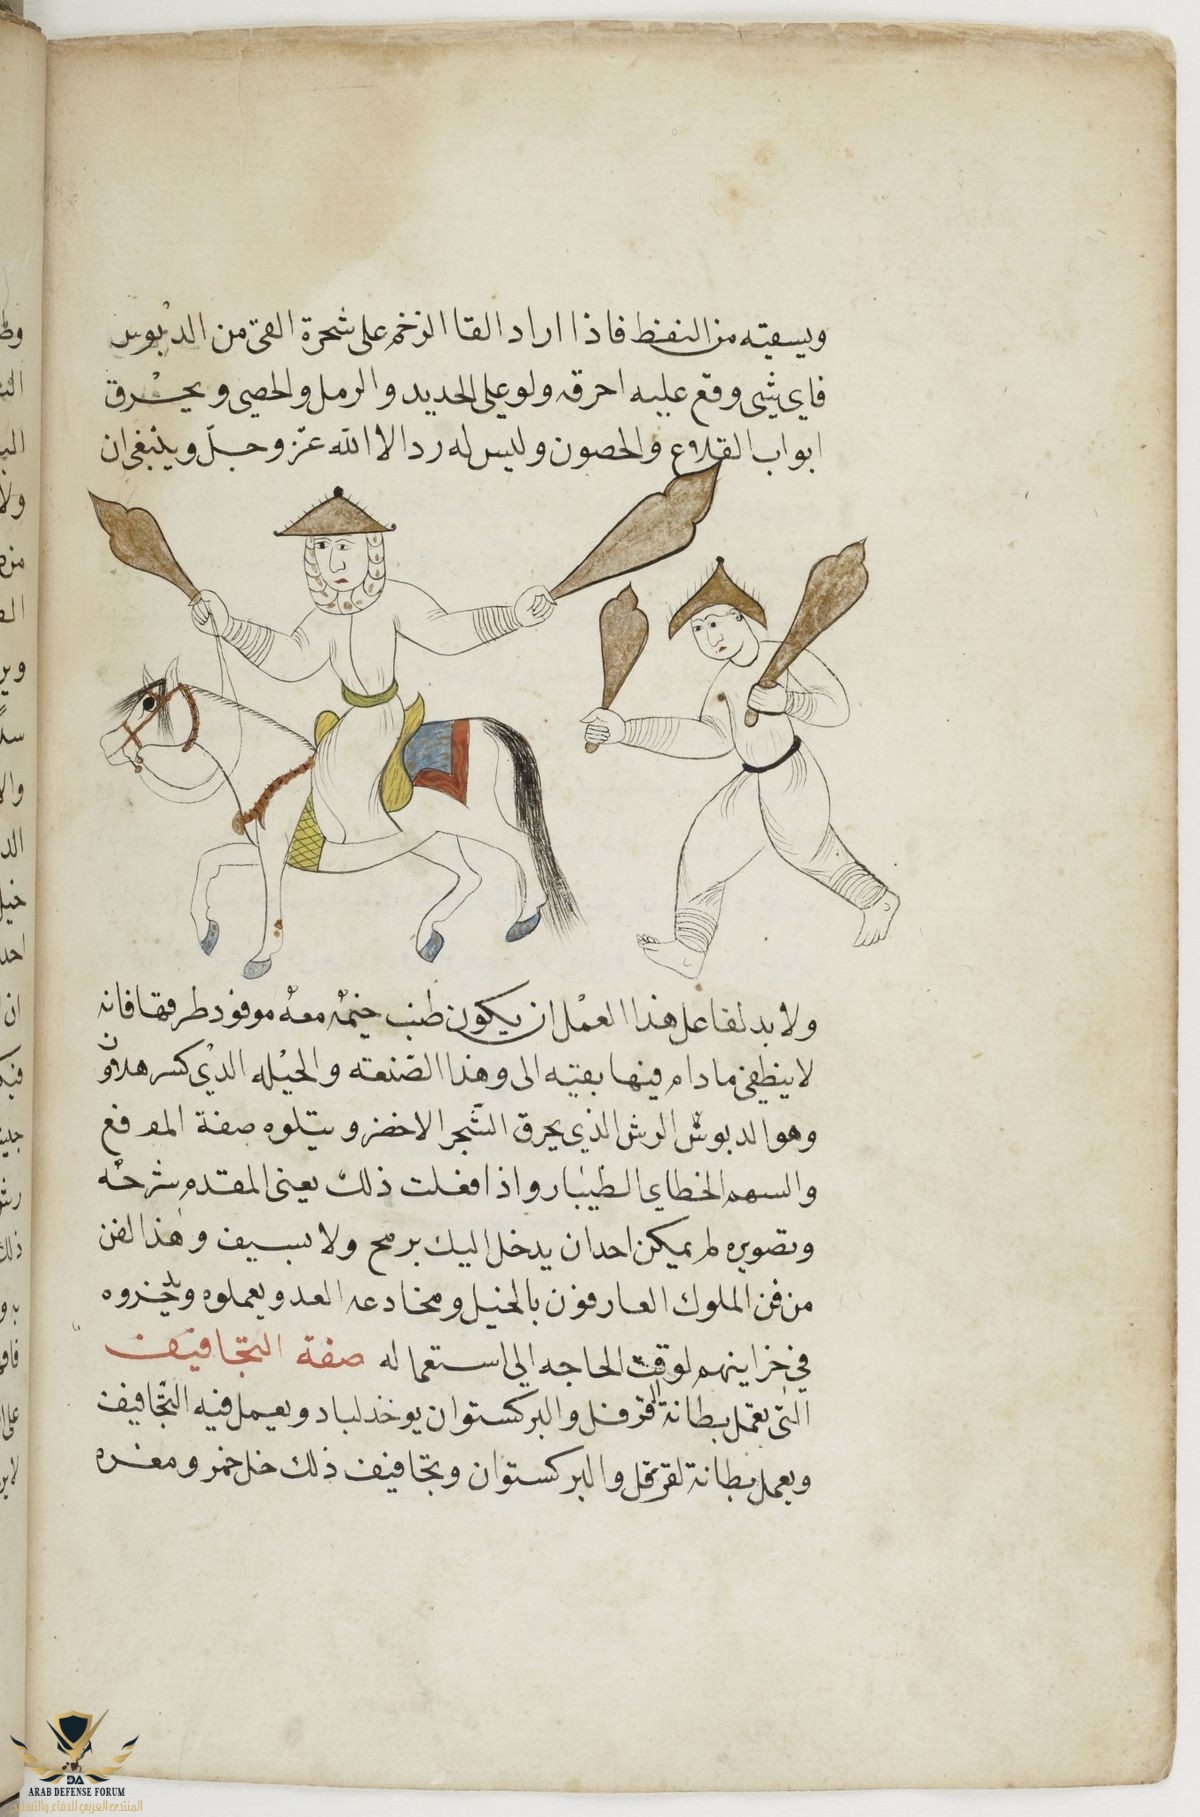 ويسقيه من النفط فاذا اراد القا الزخم على شجرة القى من الدبوس
فاي شي وقع عليه احرقه ولو على الحديد والرمل والحصى ويحرق
ابواب القلاع والحصون وليس له رد الا الله عز وجل وينبغي ان
ولا بد لفاعل هذا العمل ان يكون طنب خيمة معه موقود طرفها فانه
لا ينطفي ما دام فيها بقيه الى وهذا الصنعته والحيله الذي كسر هلاون
وهو الدبوس الرش الذي يحرق الشجر الاخضر ويتلوه صفة المدفع
والسهم الخطاي الطيار واذا فعلت ذلك يعنى المقدم شرحه
وتصويره لم يمكن احد ان يدخل اليك برمح ولا بسيف وهذا الفن
من فن الملوك العارفون بالحيل ومخادعه العدو يعملوه ويدخروه
في خزاينهم لوقت الحاجه الى استعماله صفة التجافيف
التى تعمل بطانة القرقل والبركستوان يوخد لباد ويعمل فيه التجافيف
ويعمل بطانة لقرقل والبركستوان وتجافيف ذلك خل خمر ومغره
DA
ARAB DEFENSE FORUM
المنتدى العربي للدفاع والتسليح